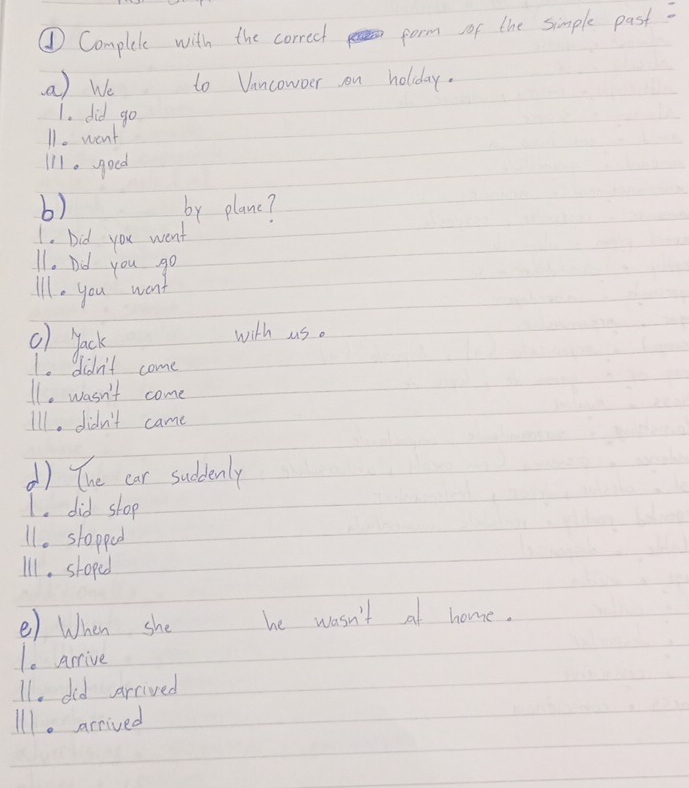 ① Complete with the correct form of the simple past :
a) We to Vancowoer on holiday.
I. did go
II. went
III. goed
b) by plane?
I. Did you went
II. Did you go
III. you went
c) Jack with us.
I. didn't come
II. wasn't come
III. didn't came
d) The car suddenly
I. did stop
II. stopped
III. stoped
e) When she he wasn't at home.
I. Arrive
II. did arrived
III. arrived